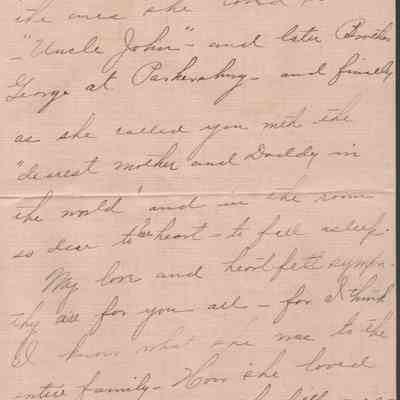 the ones she loved
– "Uncle John" – and later Brother
George at Parkersburg – and finally
as she called you meth the
"dearest mother and Daddy in
the world" and in the room
so dear to her heart – to fall asleep.
My love and heartfelt sympa-
thy are for you all – for I think
I know what she was to the
entire family – How she loved